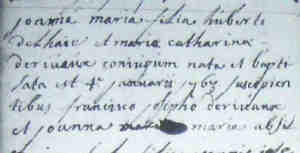 joanna maria filia huberti
delhaie et maria catharina
derivaux coniugum nata et bapti
sata est 4a januarii 1763 suscepien
tibus francisco josepho derivaux
et joanna maria